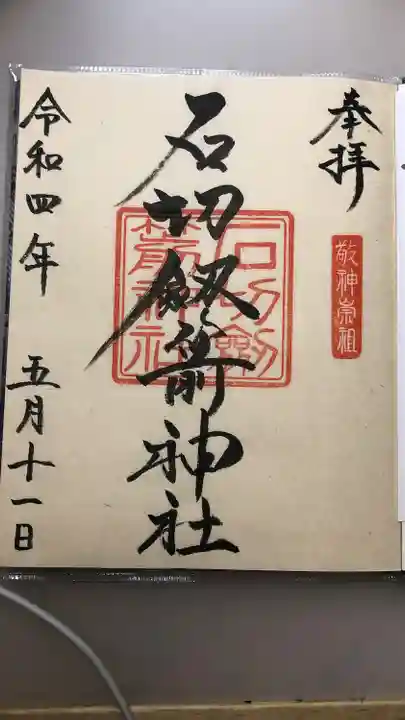 奉拝
敬神崇祖
石切劔箭神社
石切劔箭神社
令和四年 五月十一日